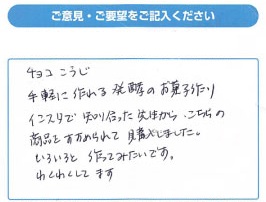 ご意見・ご要望をご記入ください
チョコこうじ
手軽に作れる発酵のお菓子作り
インスタで知り合った先生から、こちらの
商品をすすめられて購入しました。
いろいろと作ってみたいです。
わくわくしてます